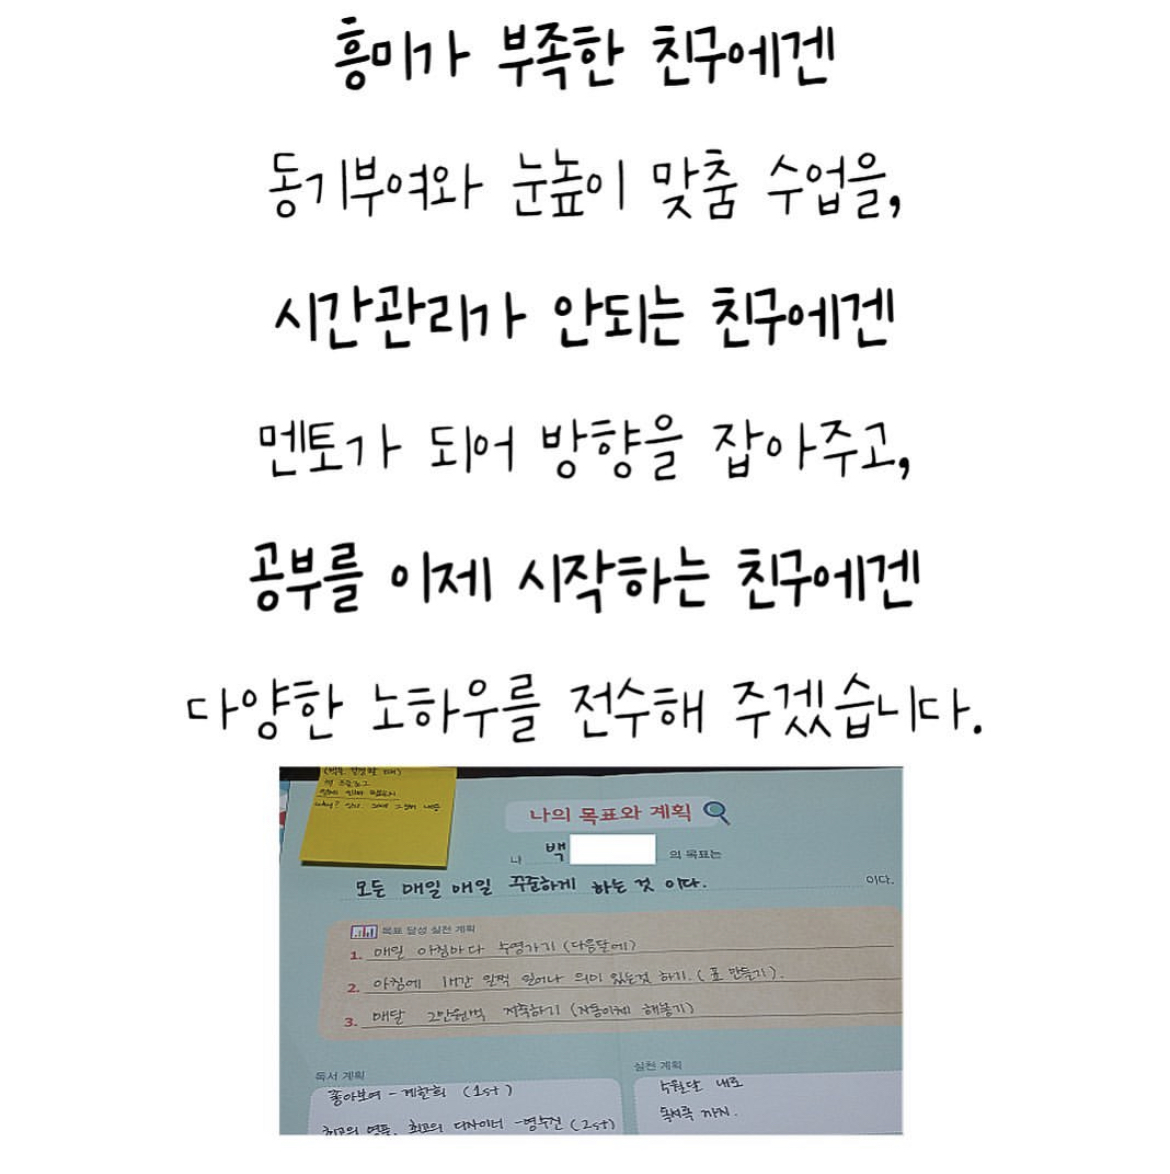 흥미가 부족한 친구에겐
동기부여와 눈높이 맞춤 수업을,
시간관리가 안되는 친구에겐
멘토가 되어 방향을 잡아주고,
공부를 이제 시작하는 친구에겐
다양한 노하우를 전수해 주겠습니다.
나의 목표와 계획
나 백 의 목표는
모든 매일 매일 꾸준하게 하는 것 이다. 이다.
목표 달성 실천 계획
1. 매일 아침마다 수영가기 (다음달에)
2. 아침에 1시간 일찍 일어나 의미 있는것 하기. (표 만들기).
3. 매달 2만원씩 저축하기 (자동이체 해놓기)
독서 계획
실천 계획
좋아보여 - 계한희 (1st)
최고의 명품, 최고의 디자이너 - 명수진 (2st)
까지.